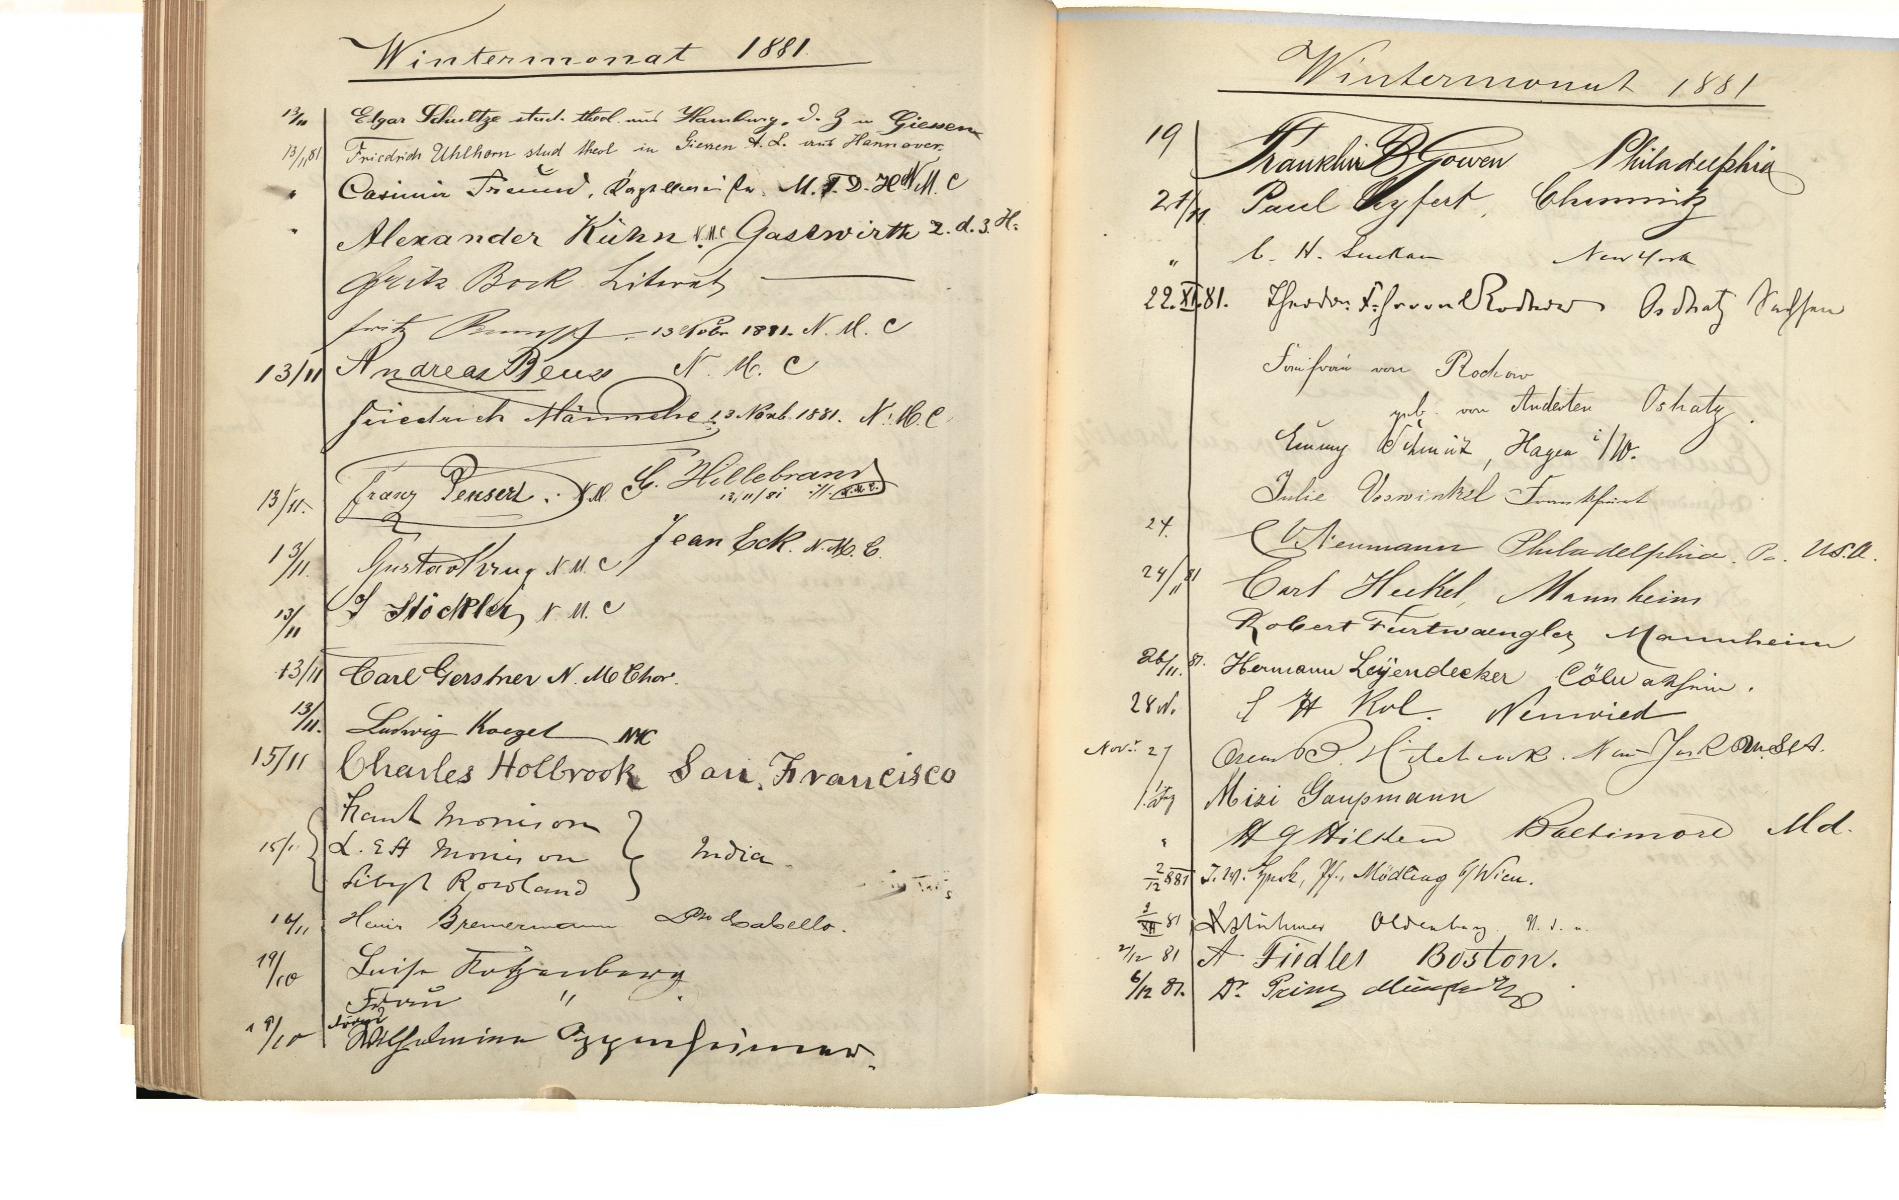 Wintermonat 1881.
13/11 Edgar Schultze stud. theol. aus Hamburg. d. Z in Giessen
13/11 81 Friedrich Uhlhorn stud theol in Giessen A. L. aus Hannover.
" Casimir Freund, M. F. D. H. N. M. C
" Alexander Kühn N.M.C Gastwirth z. d. 3. H.
Fritz Bock Literat
Fritz 13 Nobr 1881. N. M. C
13/11 Andreas Beuss N. M. C
Friedrich Männche 13 Novb. 1881. N. M. C
13/11. Franz Pensert. N. M. C G. Hillebrand 13/11/81 N. M. C.
Jean Eck. N. M. C.
13/11. Gustav Krug N. M. C
13/11 J Stöckler, N. M. C
13/11 Carl Gerstner N. M Chor.
13/11. Ludwig Koegel NMC
15/11 Charles Holbrook San Francisco
Morrison
15/11 L. E A Morrison India
Sibyl Rowland
16/11 Heinr Bremermann
19/10 Luise Rotzenberg
Frau "
19/10 Wilhelmine Oppenheimer.
Wintermonat 1881
19 Franklin B Gowen Philadelphia
21/11 Paul Seyfert, Chemnitz
" C. H. New York
22. XI. 81. Theodor Frhr von Rochow Oschatz Sachsen
Freifrau von Rochow
geb. von Anderten Oschatz.
Emmy Schmitz, Hagen i/W.
Julie Voswinkel Frankfurt
24. C Neumann Philadelphia. Pa. U.S.A.
24/11 81 Carl Heckel, Mannheim
Robert Furtwaengler, Mannheim
26/11. 81. Hermann Leÿendecker Cöln a Rhein.
28 N. H Kol. Neuwied
Novr. 27 Hitchcock. New York
Mizi Gaupmann
" H G Hilken Baltimore Md.
2/12 881 J. W. Pf., Mödling b/Wien.
3/XII 81 Oldenburg
2/12 81 A Fiedler Boston.
6/12 81. Dr. Prinz